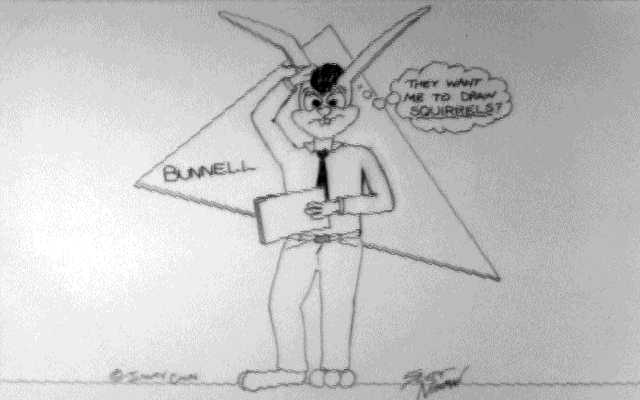 THEY WANT
ME TO DRAW
SQUIRRELS?
BUNNELL